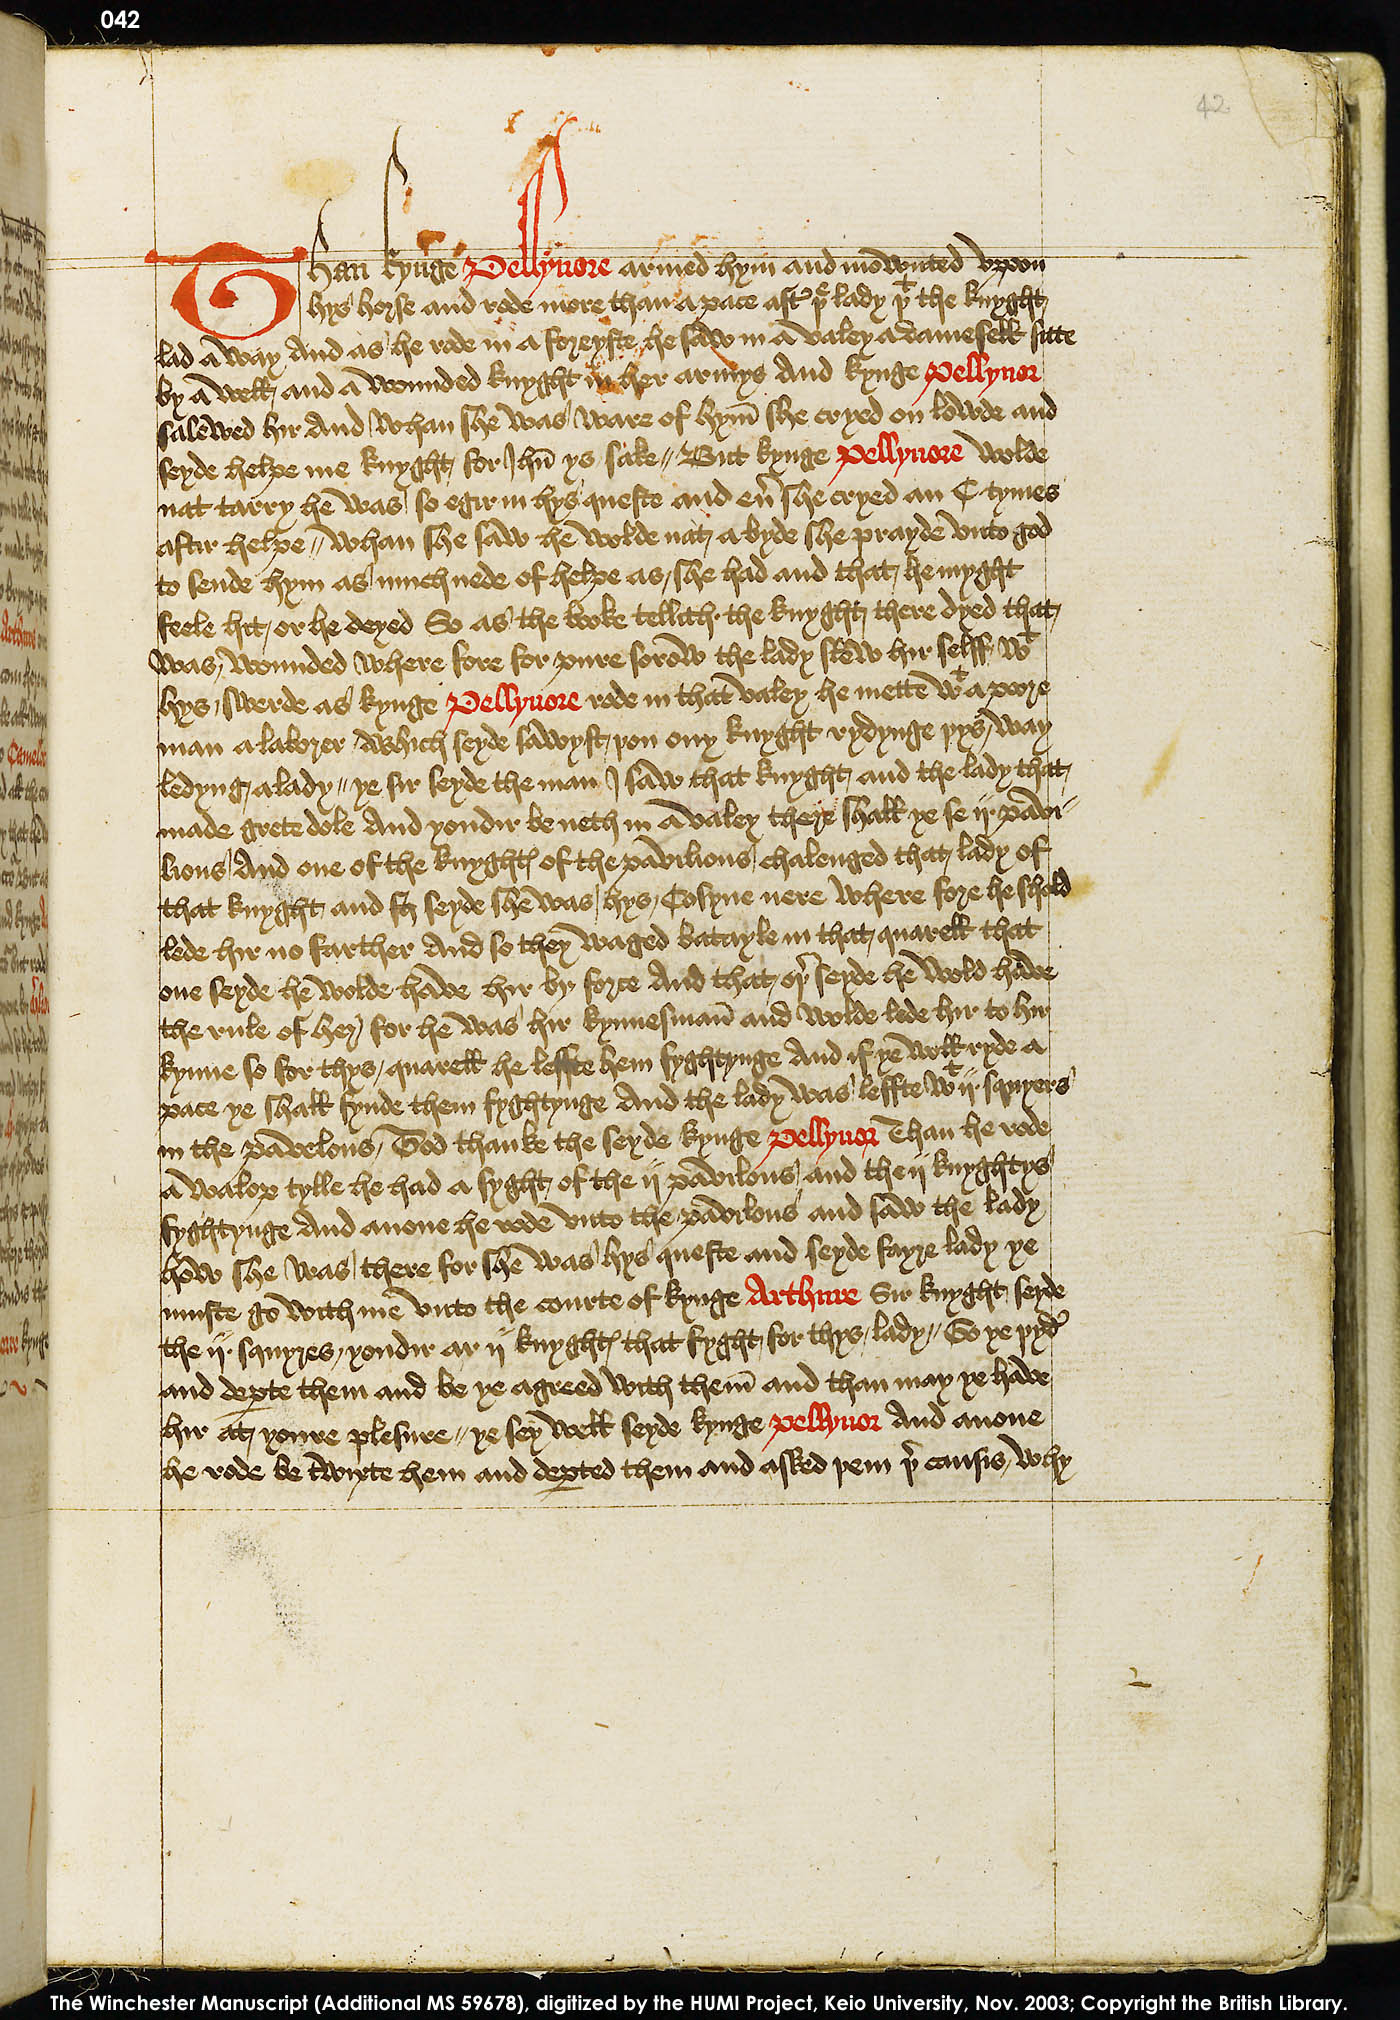 042
42
Than kynge Pellynore armed hym and mownted vppon
hys horse and rode more than a pace aft͛ þe lady þt the knyght
lad a way And as he rode in a foreyste he saw in a valey a damesell sitte
by a well and a wounded knyght in her armys And kynge Pellynor
salewed hir And whan she was ware of hym̄ she cryed on lowde and
seyde helpe me knyght for Jhū ys sake // But kynge Pellynore wolde
nat tarry he was so egir in hys queste and eū she cryed an C tymes
aftir helpe // whan she saw he wolde nat a byde she prayde vnto god
to sende hym as much nede of helpe as she had and that he myght
feele hit or he deyed So as the booke tellith the knyght there dyed that
was wounded where fore for pure sorow the lady slew hir selff wt
hys swerde as kynge Pellynore rode in that valey he mette wt a poore
man a laborer which seyde sawyst þou ony knyght rydynge þys way
ledyng a lady // ye sir seyde the man I saw that knyght and the lady that
made grete dole And yondir be neth in a valey there shall ye se ij pavi-
lions And one of the knyghtꝭ of the pavilions chalenged that lady of
that knyght and seyde she was hys Cosyne nere where fore he shold
lede hir no farther And so they waged batayle in that quarell that
one seyde he wolde have hir by force And that oþ͛ seyde he wold have
the rule of her for he was hir kynnesman̄ and wolde lede hir to hir
kynne so for thys quarell he leffte hem fyghtynge And if ye woll ryde a
pace ye shall fynde them fyghtynge And the lady was leffte wt ij squyers
in the pavelons God thanke the seyde kynge Pellynor Than he rode
a walop tylle he had a syght of the ij pavilons and the ij knyghtys
fyghtynge And anone he rode vnto the pavilons and saw the lady
how she was there for she was hys queste and seyde fayre lady ye
muste go with me vnto the courte of kynge Arthure Sir knyght seyde
the ij squyres yondir ar ij knyghtꝭ that fyght for thys lady // Go ye þyd͛
and dep̱te them and be ye agreed with them̄ and than may ye have
hir at youre plesure // ye sey well seyde kynge Pellynor And anone
he rode be twyxte hem and dep̱ted them and asked þem þ͛ causis why
The Winchester Manuscript (Additional MS 59678), digitized by the HUMI Project, Keio University, Nov. 2003; Copyright the British Library.